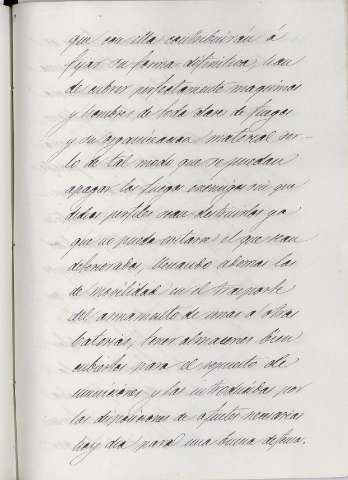 que con ellas contribuirán á
fijar su forma definitiva; han
de cubrir perfectamente maquinas
y hombres de toda clase de fuegos
y su organizacion material ser-
lo de tal modo que se puedan
apagar los fuegos enemigos sin que
dichos perfiles sean destruidos ya
que no pueda evitarse el que sean
deteriorados, llenando ademas las
de movilidad en el trasporte
del armamento de unas a otras
baterias, tener almacenes bien
cubiertos para el repuesto de
municiones y las introducidas por
las disposiciones de afustes necesarias
hoy dia para una buena defensa.